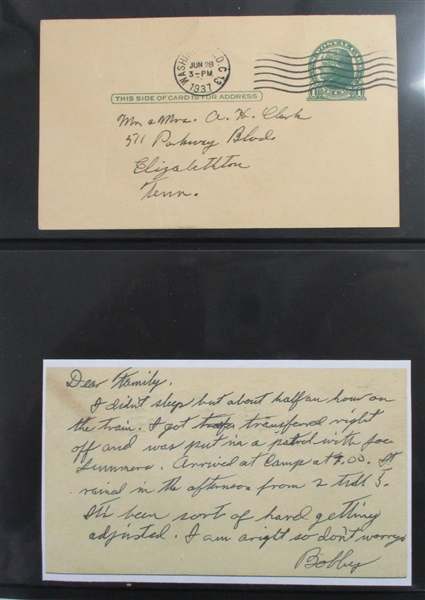 WASHINGTON, D.C. 13
JUN 28
3-PM
1937
THIS SIDE OF CARD IS FOR ADDRESS
Mr & Mrs. A. H. Clark
511 Parkway Blvd.
Elizabethton
Tenn.
Dear Family,
I didn't sleep but about half an hour on
the train. I got transfered right
off and was put in a patrol with Joe
Summers. Arrived at Camp at 9.00. It
rained in the afternoon from 2 till 5.
It's been sort of hard getting
adjusted. I am aright so don't worry.
Bobby